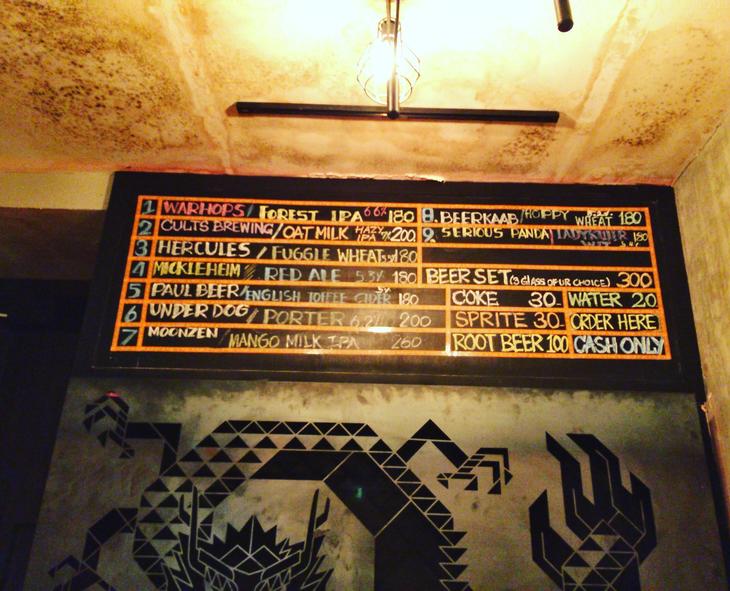 1 WARHOPS / FOREST IPA 6.6% 180
2 CULTS BREWING / OAT MILK HAZY IPA 7% 200
3 HERCULES / FUGGLE WHEAT 180
4 MICKLEHEIM RED ALE 5.3% 180
5 PAUL BEER / ENGLISH TOFFEE CIDER 5% 180
6 UNDER DOG / PORTER 6.2% 200
7 MOONZEN MANGO MILK IPA 260
8. BEERKAAB / HOPPY WHEAT 180
9. SERIOUS PANDA / 180
BEER SET (3 GLASS OF UR CHOICE) 300
COKE 30 WATER 20
SPRITE 30 ORDER HERE
ROOT BEER 100 CASH ONLY